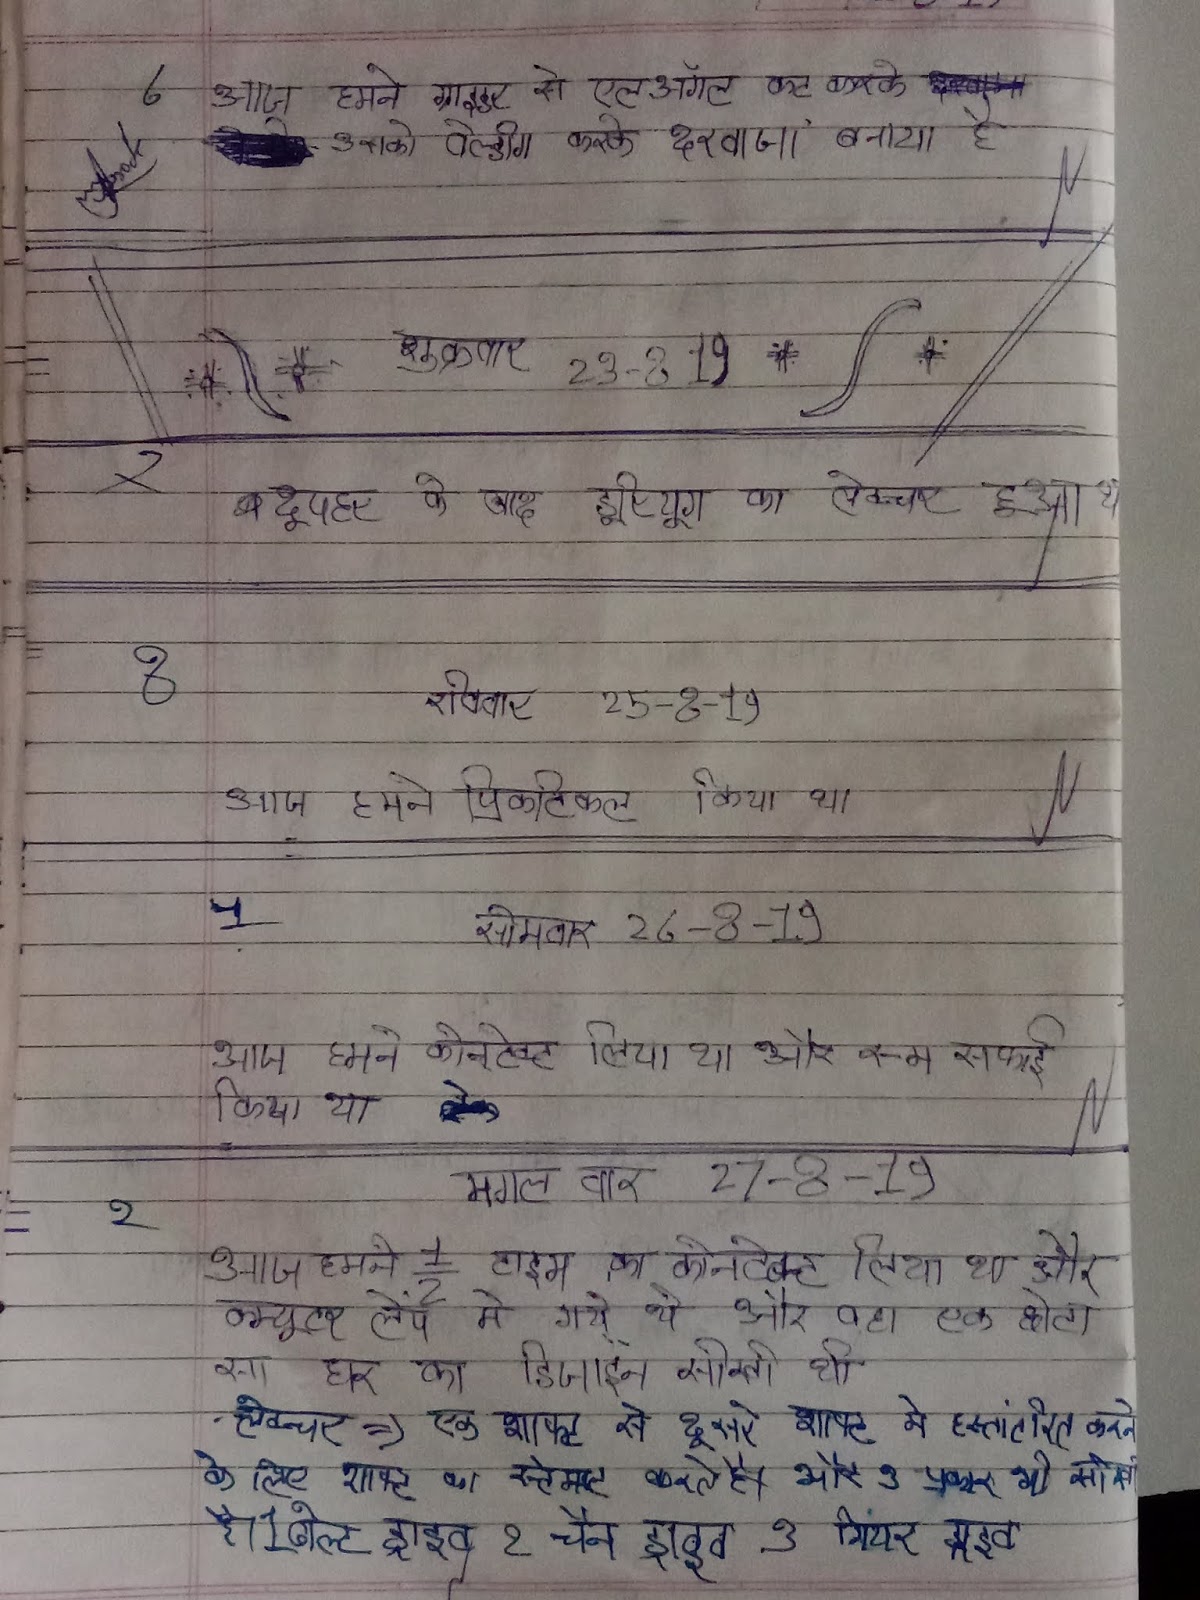 ६ आज हमने ग्राइडर से एलअँगल कट करके
उसको वेल्डींग करके दरवाजा बनाया है
शुक्रवार 23-8-19
२
दूपहर के बाद का लेक्चर हुआ था
8
रविवार 25-8-19
आज हमने प्रिकटिकल किया था
1
सोमवार 26-8-19
आज हमने कोनटेक्ट लिया था और रूम सफाई
किया था
मगल वार 27-8-19
२
आज हमने 1/2 टाइम का कोनटेक्ट लिया था और
लेंप मे गये थे और वहा एक छोटा
सा घर का डिजाईन सीखी थी
लेक्चर => एक शाफ्ट से दूसरे शाफ्ट मे हस्तांतरित करने
के लिए शाफ्ट का करते है। और 3 प्रकार भी सीखा
है। 1 बेल्ट ड्राइव 2 चैन ड्राइव 3 गियर ड्राइव